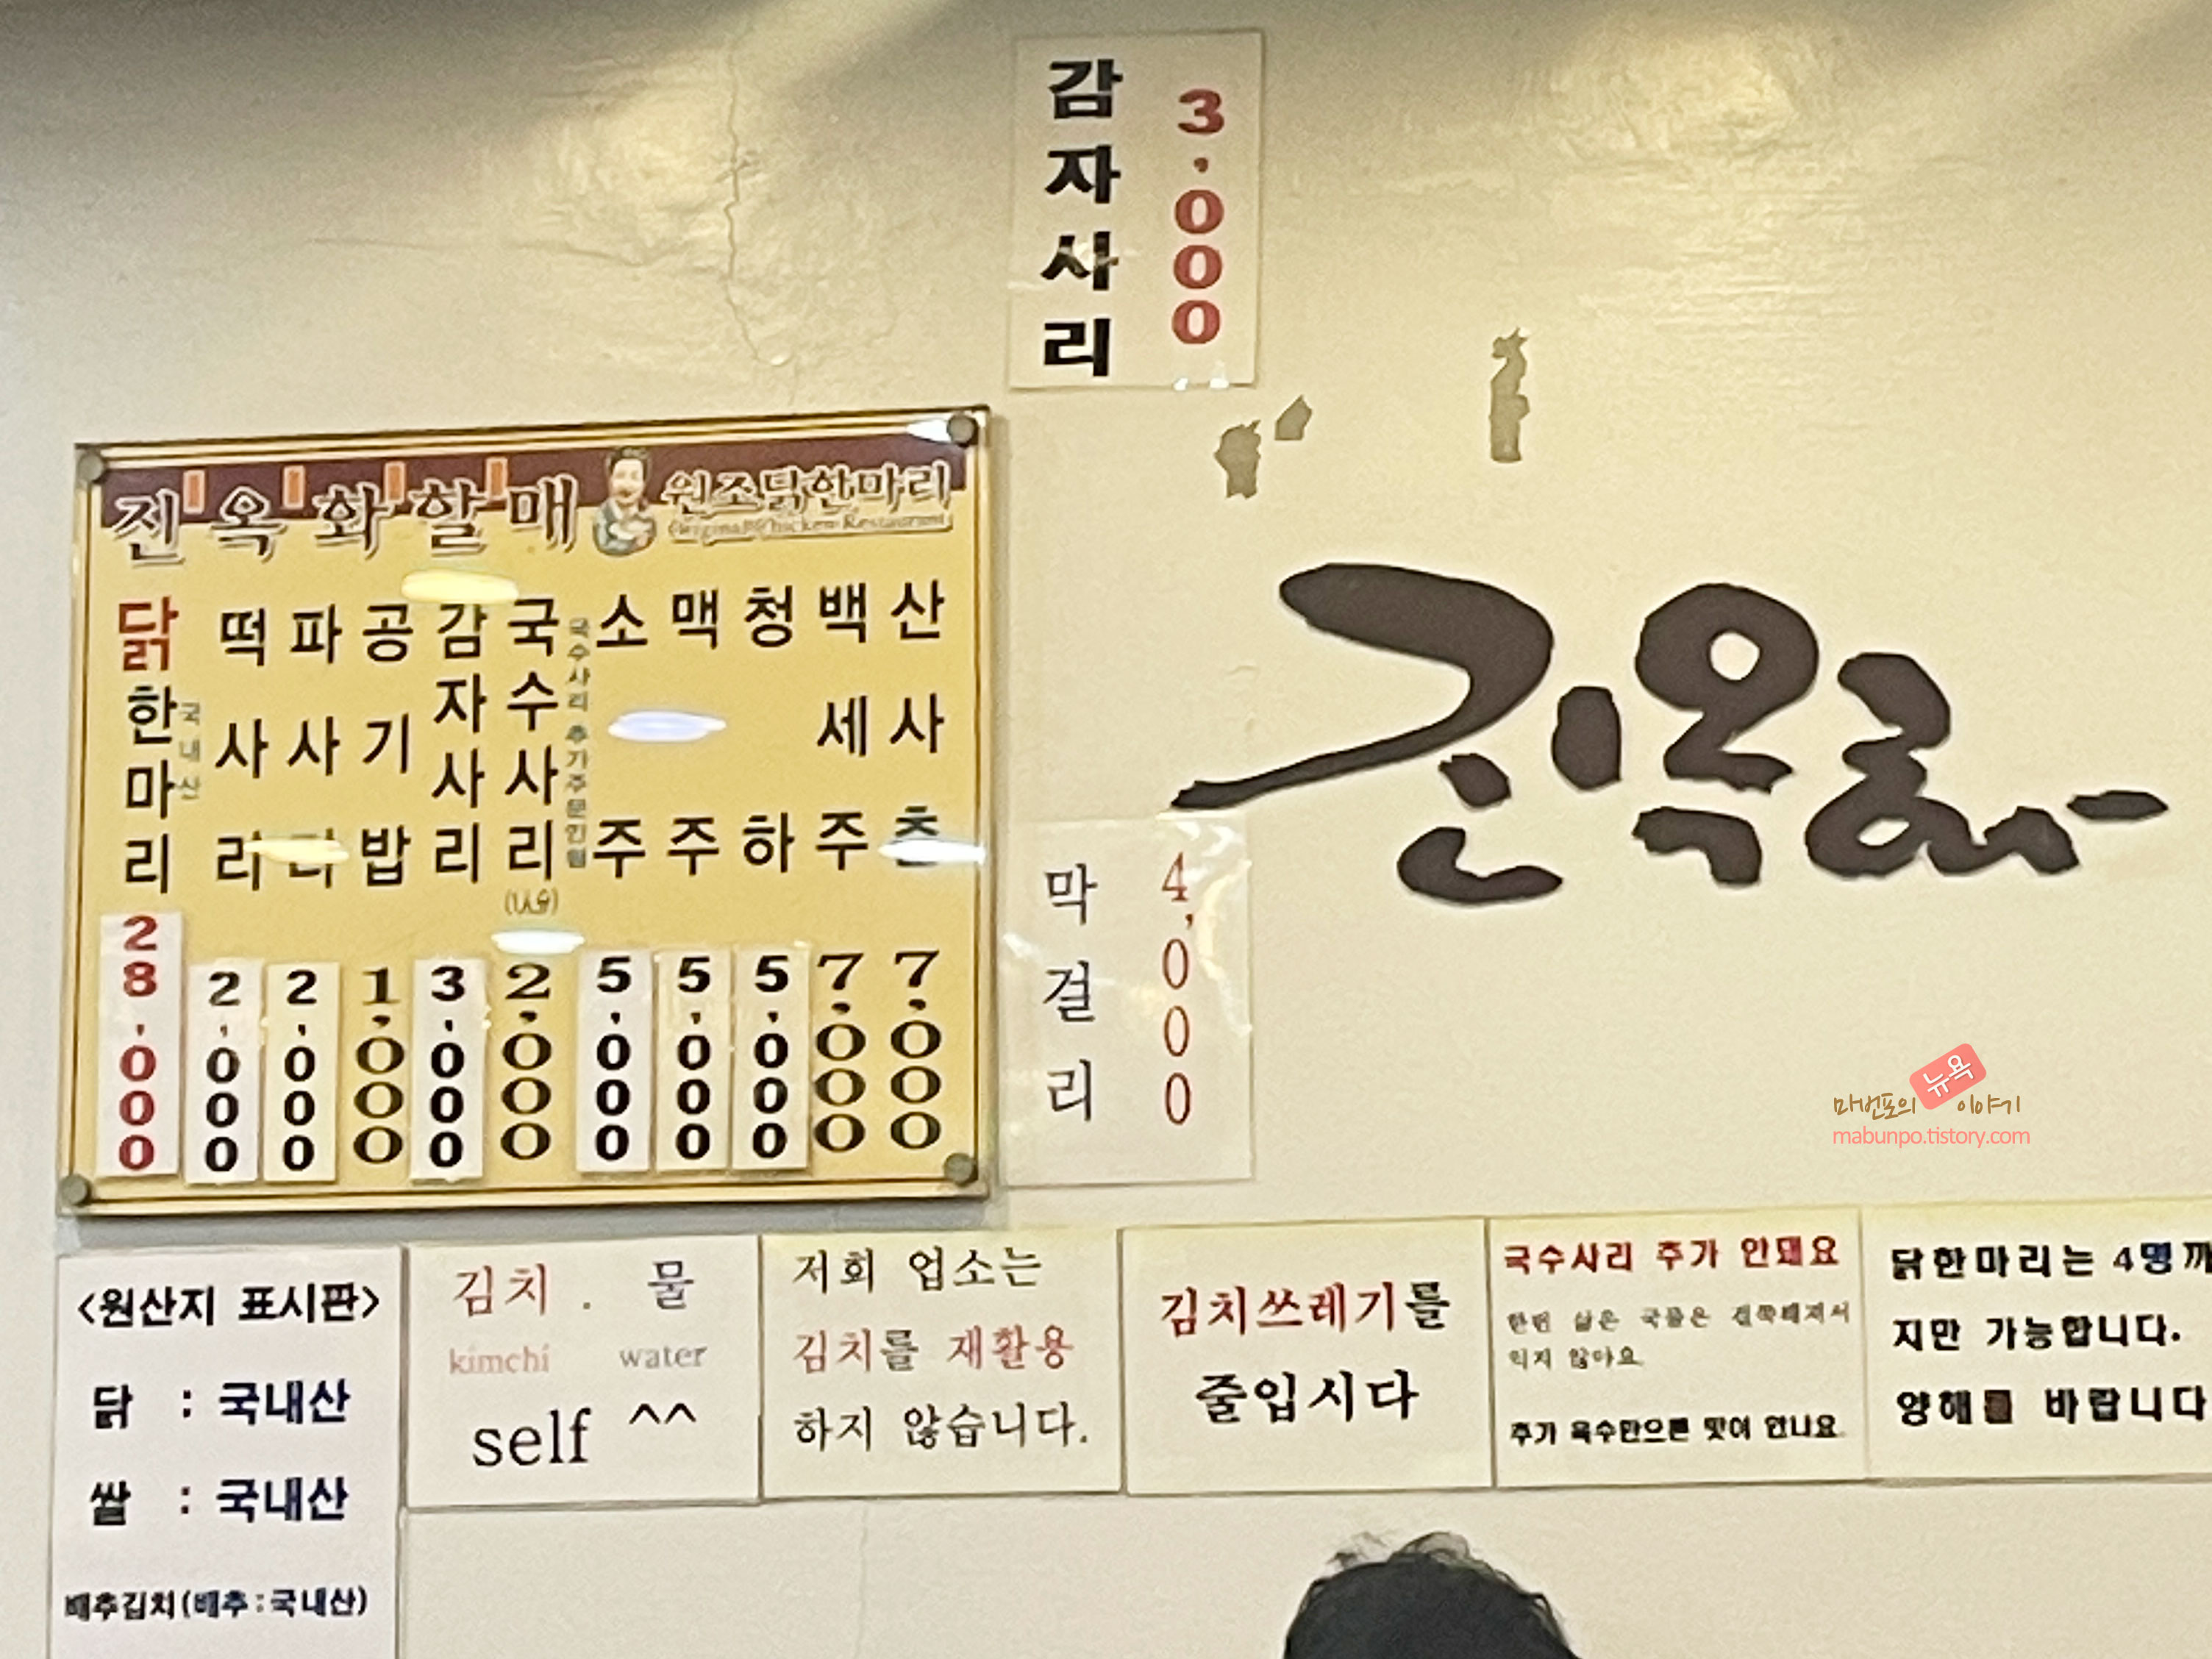 감자사리 3,000
진옥화할매 원조닭한마리
Original Chicken Restaurant
닭한마리 국내산 28,000
떡사리 2,000
파사리 2,000
공기밥 1,000
감자사리 3,000
국수사리 2,000
국수사리 추가주문인형
소주 5,000
맥주 5,000
청하 5,000
백세주 7,000
산사춘 7,000
진옥화
막걸리 4,000
마번포의 뉴욕 이야기
mabunpo.tistory.com
<원산지 표시판>
닭 : 국내산
쌀 : 국내산
배추김치(배추:국내산)
김치 . 물
kimchi water
self ^^
저희 업소는
김치를 재활용
하지 않습니다.
김치쓰레기를
줄입시다
국수사리 추가 안돼요
한번 삶은 국물은 걸쭉해져서
익지 않아요
추가 육수만으론 맛이 안나요.
닭한마리는 4명까
지만 가능합니다.
양해를 바랍니다